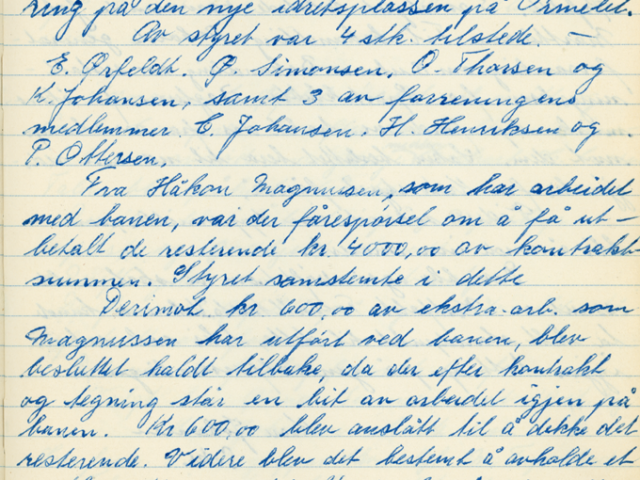 ring på den nye idretsplassen på Ormelet.
Av styret var 4 stk. tilstede. —
E. Ørfeldt. Ø. Simonsen. O. Thorsen og
K. Johansen, samt 3 av forreningens
medlemmer. C. Johansen. H. Henriksen og
P. Ottersen.
Fra Håkon Magnussen, som har arbeidet
med banen, var der fåresporsel om å få ut-
betalt de resterende kr. 4000,00 av kontrakt-
summen. Styret samstemte i dette
Derimot kr 600,00 av ekstra arb. som
Magnussen har utført ved banen, blev
besluttet haldt tilbake, da der efter kontrakt
og tegning står en bit av arbeidet igjen på
banen. Kr 600,00 blev anslått til å dekke det
resterende. Videre blev det bestemt å avholde et